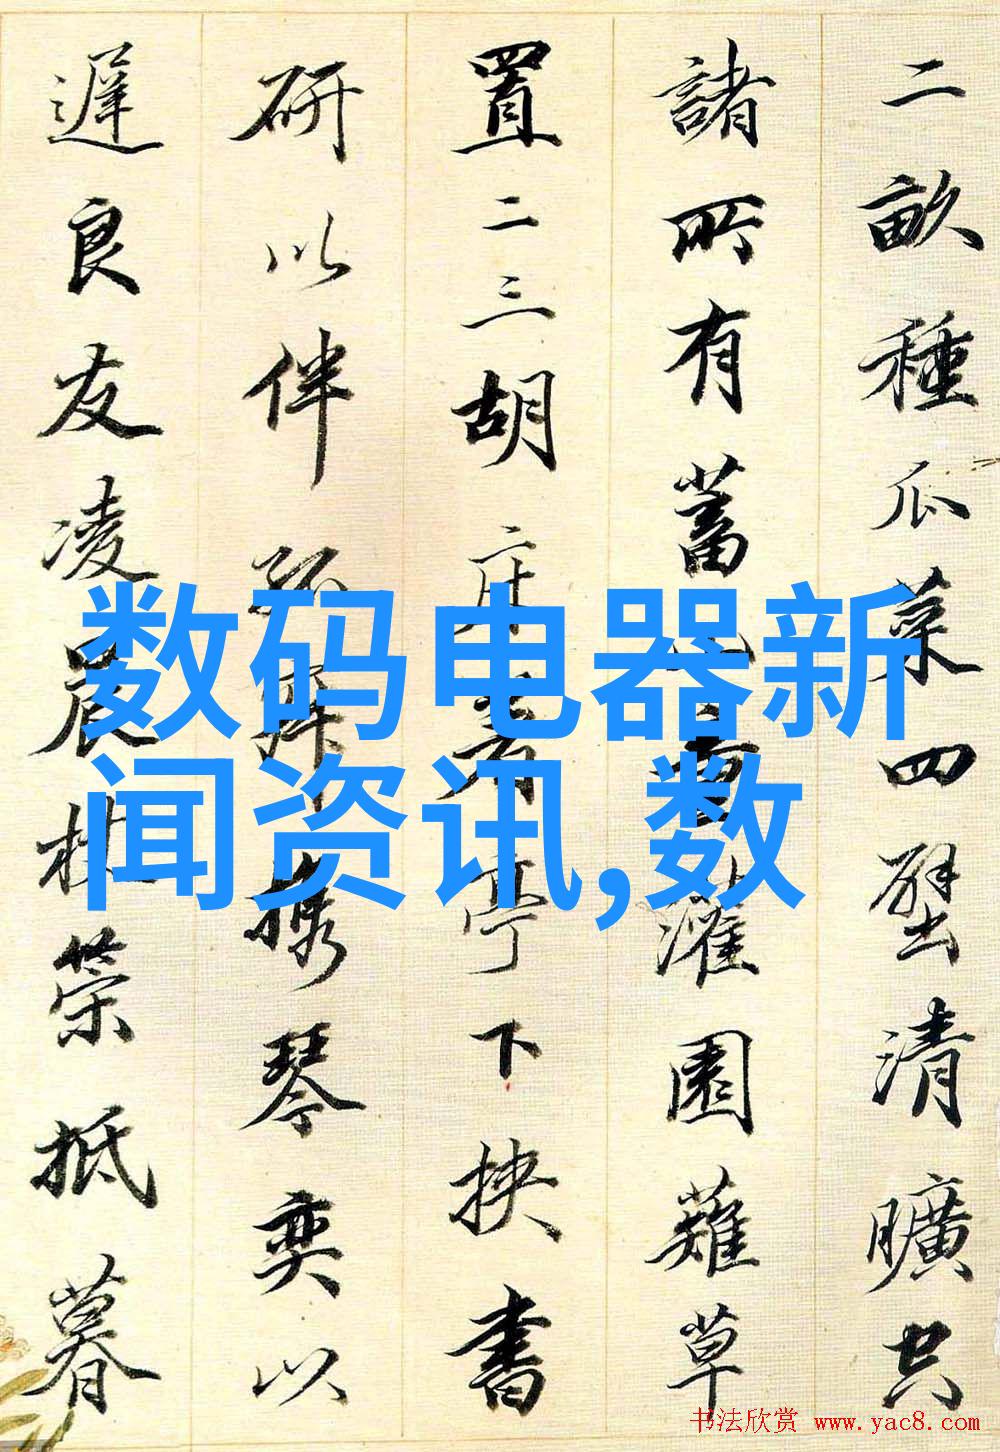 二畝種瓜菜四壁清曠共
諸所有蓄灌園薙草
置二三胡床著亭下挾書
研以伴孤寂携琴奕以
遲良友凌晨杖策抵暮
数码电器新
闻资讯,数
书法欣赏 www.yac8.com